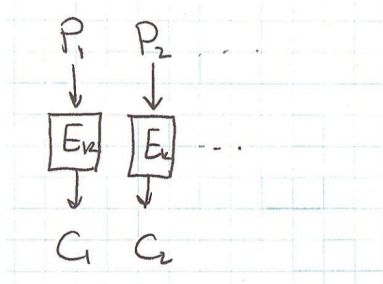 P₁ P₂ ....
E_K E_K ...
C₁ C₂